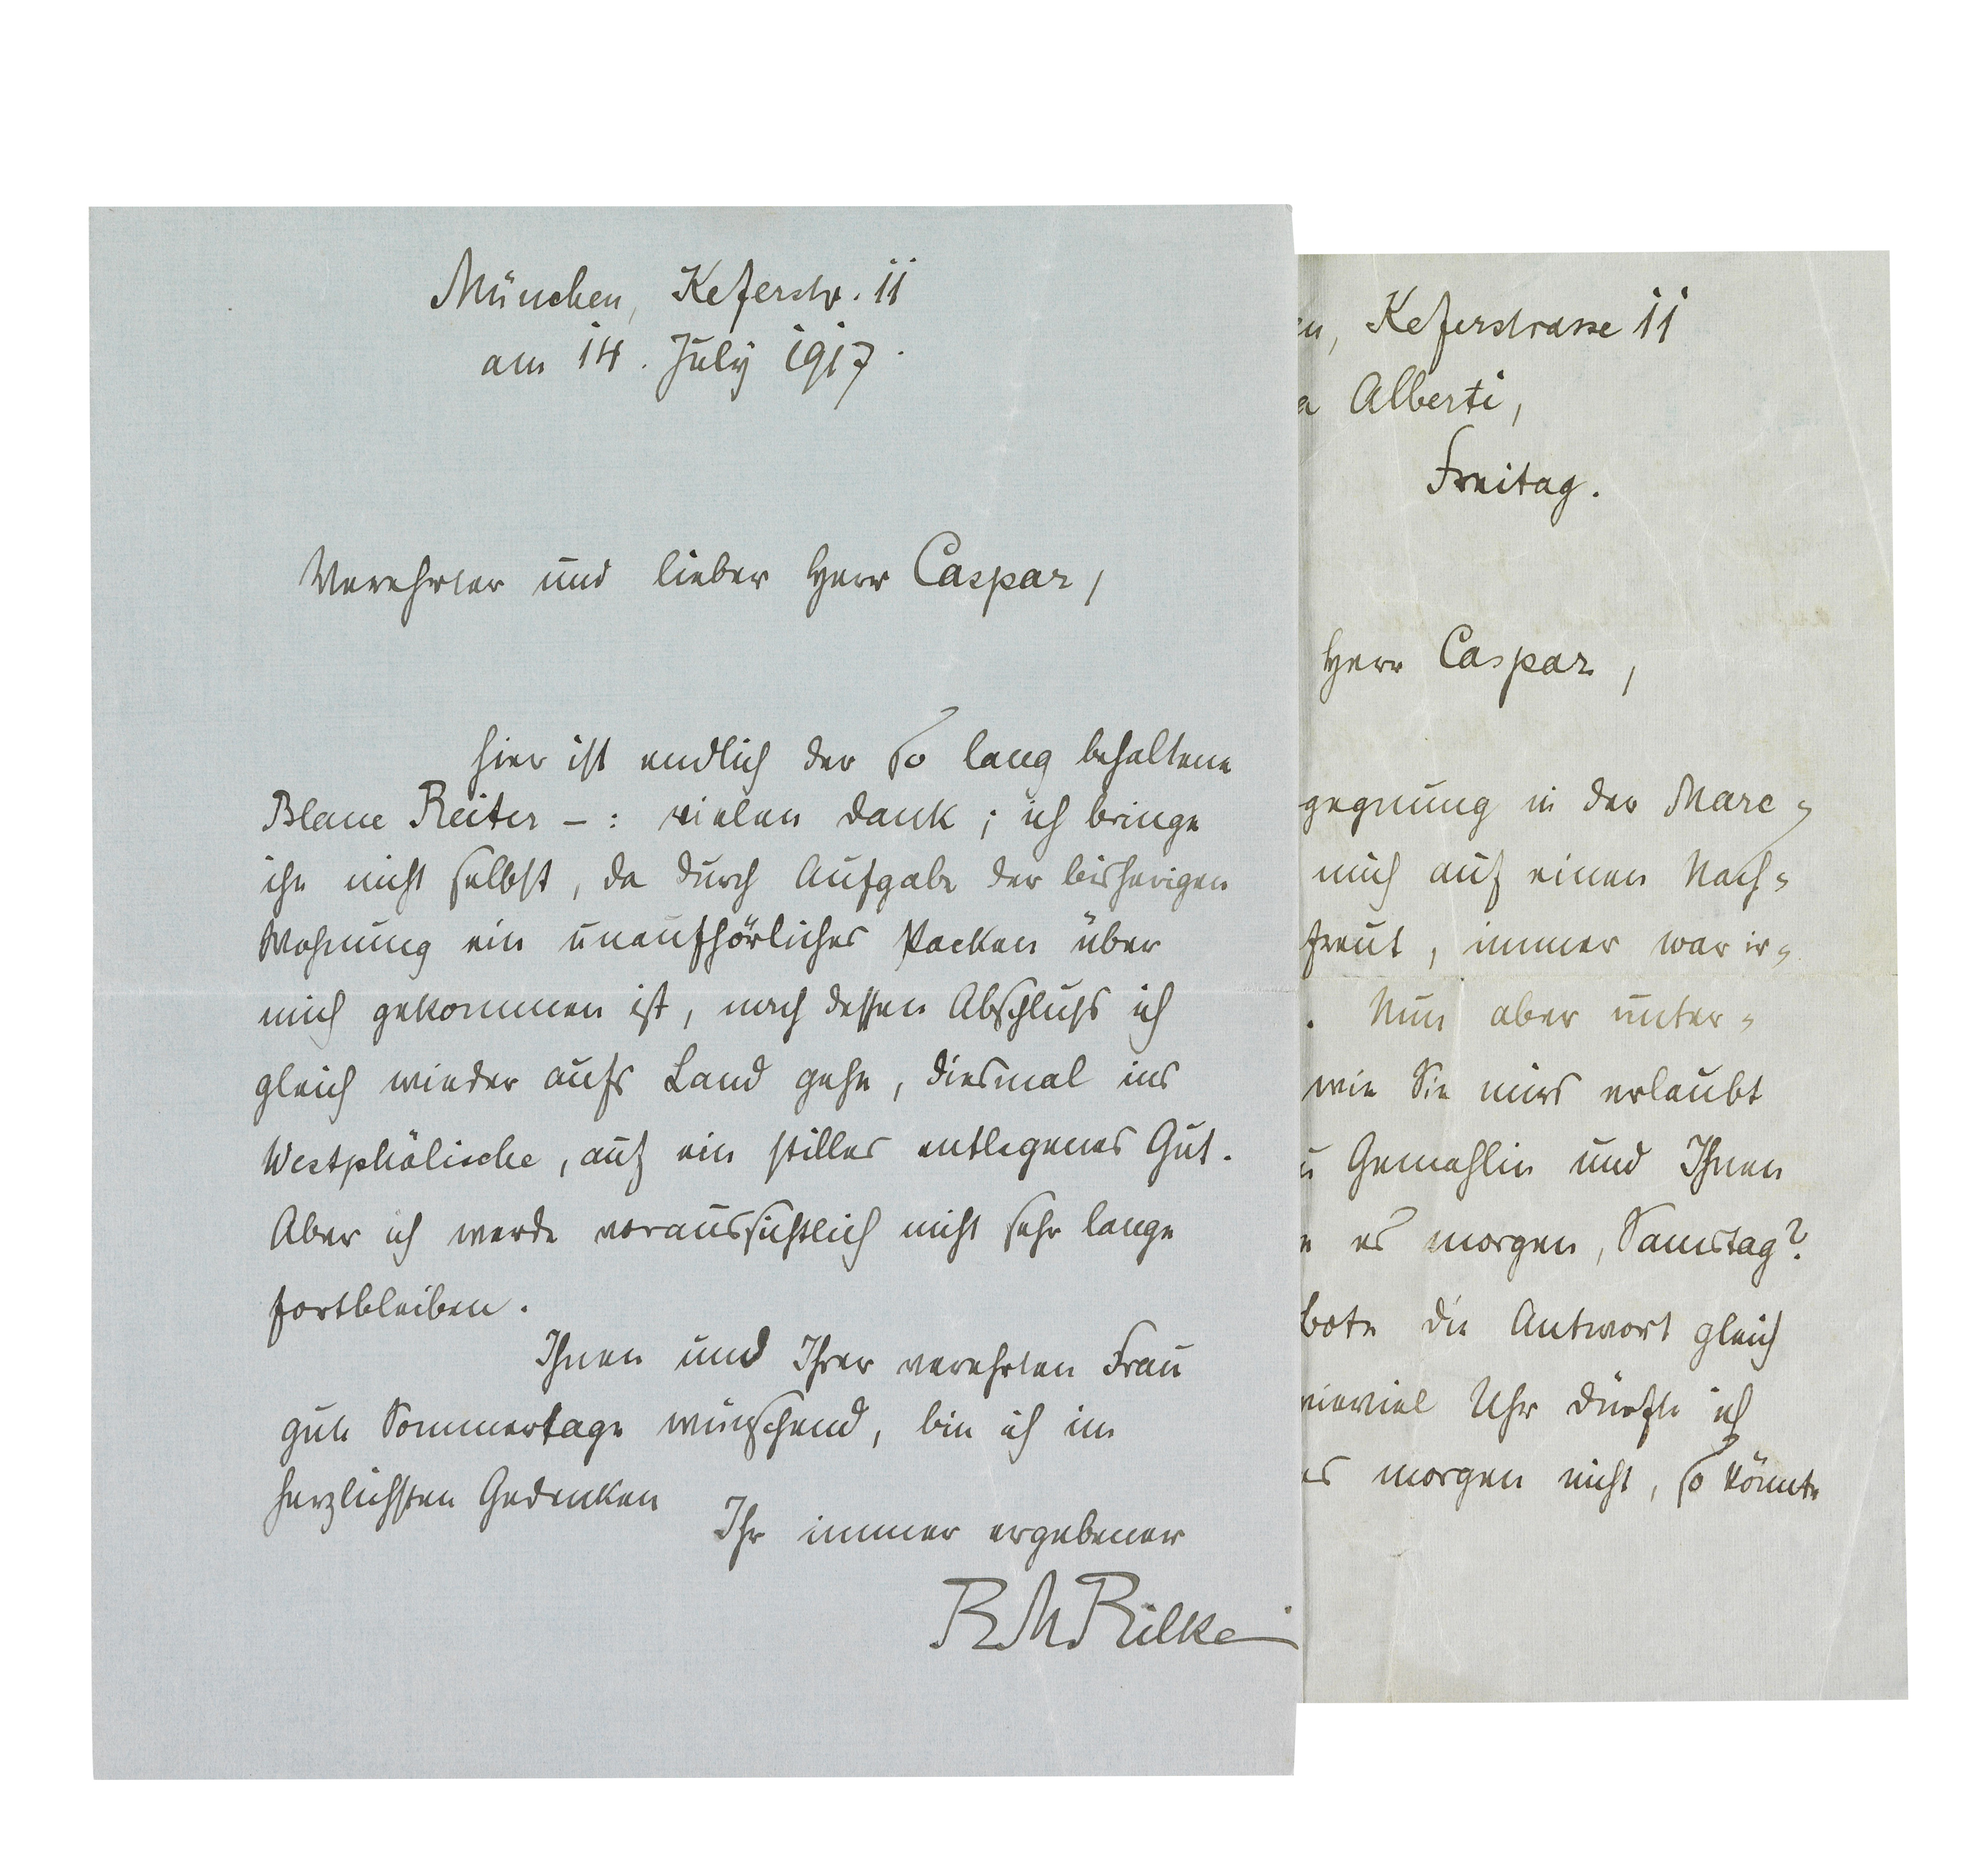 München, Keferstr. 11
am 14. July 1917.
Verehrter und lieber Herr Caspar,
hier ist endlich der so lang behaltene
Blaue Reiter – : vielen Dank ; ich bringe
ihn nicht selbst, da durch Aufgabe der bisherigen
Wohnung ein unaufhörliches Packen über
mich gekommen ist, nach dessen Abschluss ich
gleich wieder aufs Land gehe, diesmal ins
Westphälische, auf ein stilles entlegenes Gut.
Aber ich werde voraussichtlich nicht sehr lange
fortbleiben.
Ihnen und Ihrer verehrten Frau
gute Sommertage wünschend, bin ich im
herzlichsten Gedenken
Ihr immer ergebener
RMRilke
en, Keferstrasse 11
a Alberti,
Freitag.
Herr Caspar,
gegnung in der Marc=
mich auf einen Nach=
freut, immer war ir=
. Nun aber unter=
wie Sie mirs erlaubt
u Gemahlin und Ihnen
e es morgen, Samstag?
bote die Antwort gleich
wieviel Uhr dürfte ich
es morgen nicht, so könnte